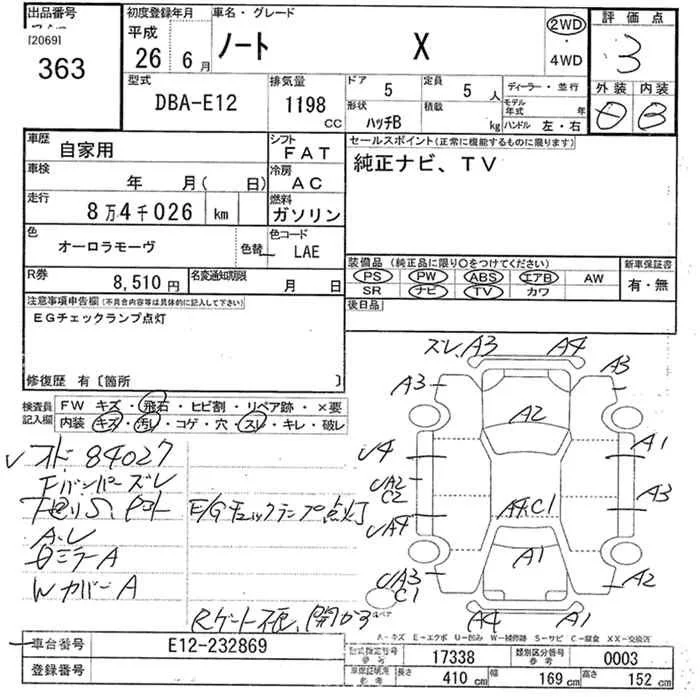 出品番号
[2069]
363
初度登録年月
平成
26年 6月
車名・グレード
ノート X
2WD
・
4WD
評価点
3
外装 内装
B
型式
DBA-E12
排気量
1198
CC
ドア
5
定員
5人
形状
ハッチB
積載
kg
ディーラー・並行
モデル年式 年
ハンドル 左・右
車歴
自家用
シフト
FAT
車検
年 月( 日)
冷房
AC
走行
8万4千026 km
燃料
ガソリン
色
オーロラモーヴ
色替
色コード
LAE
R券
8,510円
名変通知期限
月 日
セールスポイント(正常に機能するものに限ります)
純正ナビ、TV
装備品 (純正品に限り○をつけてください)
PS PW ABS エアB AW
SR ナビ TV カワ
新車保証書
有・無
後日品
注意事項申告欄(不具合内容等は具体的に記入して下さい)
EGチェックランプ点灯
修復歴 有〔箇所 〕
検査員記入欄
FW キズ・飛石・ヒビ割・リペア跡・×要
内装 キズ・汚レ・コゲ・穴・スレ・キレ・破レ
オド 84027
Fバンパーズレ
E/Gチェックランプ点灯
ミラーA
WカバーA
Rゲート不良、開かず
スレ、A3 A4
A3 A3
A2
A4 A1
UA2
C2
A4.C1 A3
UA4
A1
UA3
C1
A2
A4 A1
スペア
A-キズ E-エクボ U-凹み W-補修跡 S-サビ C-腐食 XX-交換済
車台番号
E12-232869
登録番号
型式指定番号
参考
17338
類別区分番号
参考
0003
参考
長さ 410 cm
幅 169 cm
高さ 152 cm